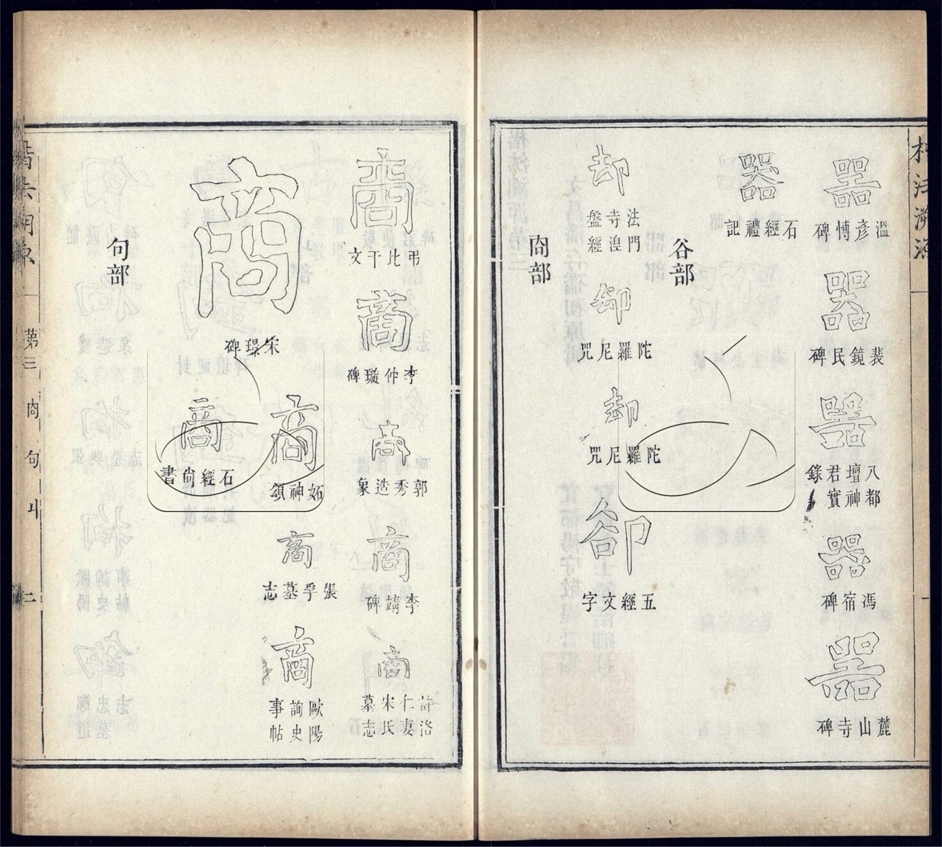 楷法溯源
器
溫彥博碑
器
裴鏡民碑
器
八都壇神君實錄
器
馮宿碑
器
麓山寺碑
器
石經禮記
谷部
却
法門寺湼盤經
卻
陀羅尼咒
却
陀羅尼咒
卻
五經文字
㕯部
商
弔比干文
商
李仲璇碑
商
郭秀造象
商
李靖碑
商
許洛仁妻宋氏墓志
商
宋璟碑
商
妬神頌
商
石經尚書
商
張孚墓志
商
歐陽詢史事帖
句部
楷法溯源
第三
㕯
句
丩
二